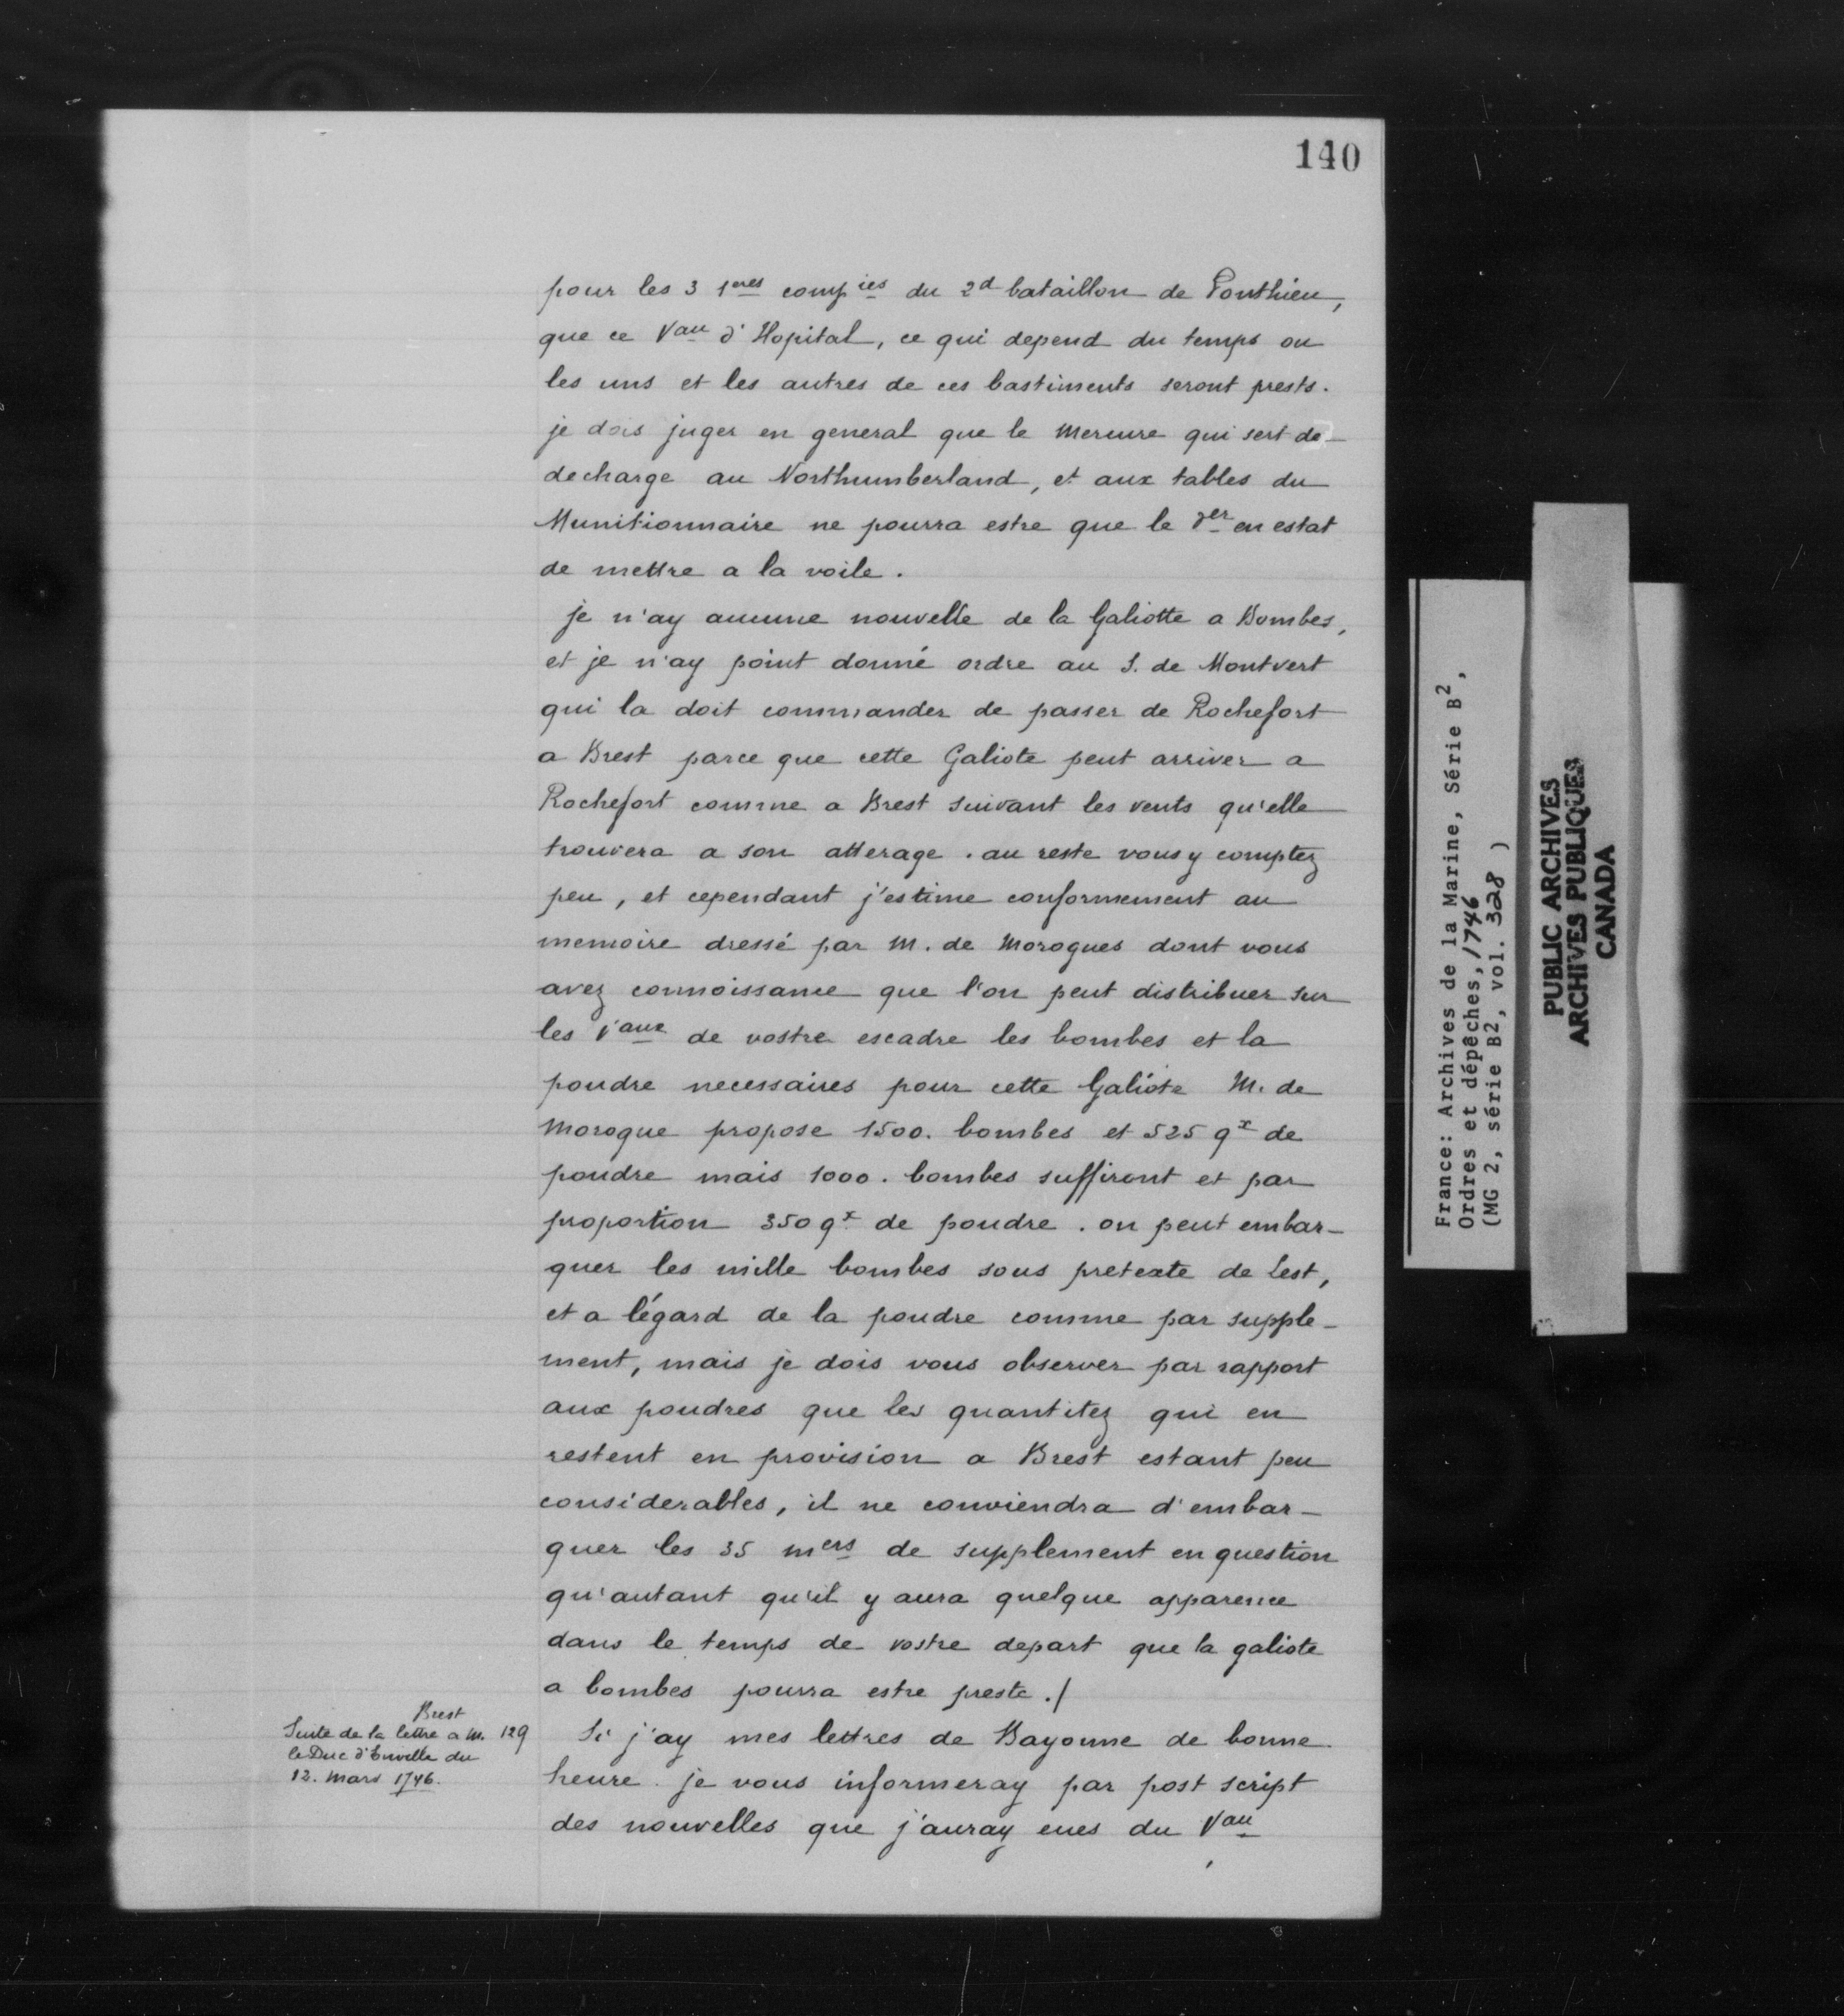 140
pour les 3 1eres compies du 2d bataillon de Ponthieu,
que ce Vau d'Hopital, ce qui depend du temps ou
les uns et les autres de ces bastiments seront prests.
je dois juger en general que le Mercure qui sert de
decharge au Northumberland, et aux tables du
Munitionnaire ne pourra estre que le der en estat
de mettre a la voile.
je n'ay aucune nouvelle de la Galiotte a Bombes,
et je n'ay point donné ordre au S. de Montvert
qui la doit commander de passer de Rochefort
a Brest parce que cette Galiote peut arriver a
Rochefort comme a Brest suivant les vents qu'elle
trouvera a son atterage. au reste vous y comptez
peu, et cependant j'estime conformement au
memoire dressé par M. de Morogues dont vous
avez connoissance que l'on peut distribuer sur
les vaux de vostre escadre les bombes et la
poudre necessaires pour cette Galiote M. de
Morogue propose 1500. bombes et 525 qx de
poudre mais 1000. bombes suffiront et par
proportion 350 qx de poudre. on peut embar-
quer les mille bombes sous pretexte de Lest,
et a légard de la poudre comme par supple-
ment, mais je dois vous observer par rapport
aux poudres que les quantitez qui en
restent en provision a Brest estant peu
considerables, il ne conviendra d'embar-
quer les 35 mers de supplement en question
qu'autant qu'il y aura quelque apparence
dans le temps de vostre depart que la galiote
a bombes pourra estre preste./
Brest
Suite de la lettre a M. 129
le Duc d'Enville du
12. Mars 1746.
Si j'ay mes lettres de Bayonne de bonne
heure je vous informeray par post script
des nouvelles que j'auray eues du Vau
France: Archives de la Marine, Série B2,
Ordres et dépêches, 1746
(MG 2, série B2, vol. 328 )
PUBLIC ARCHIVES
ARCHIVES PUBLIQUES
CANADA